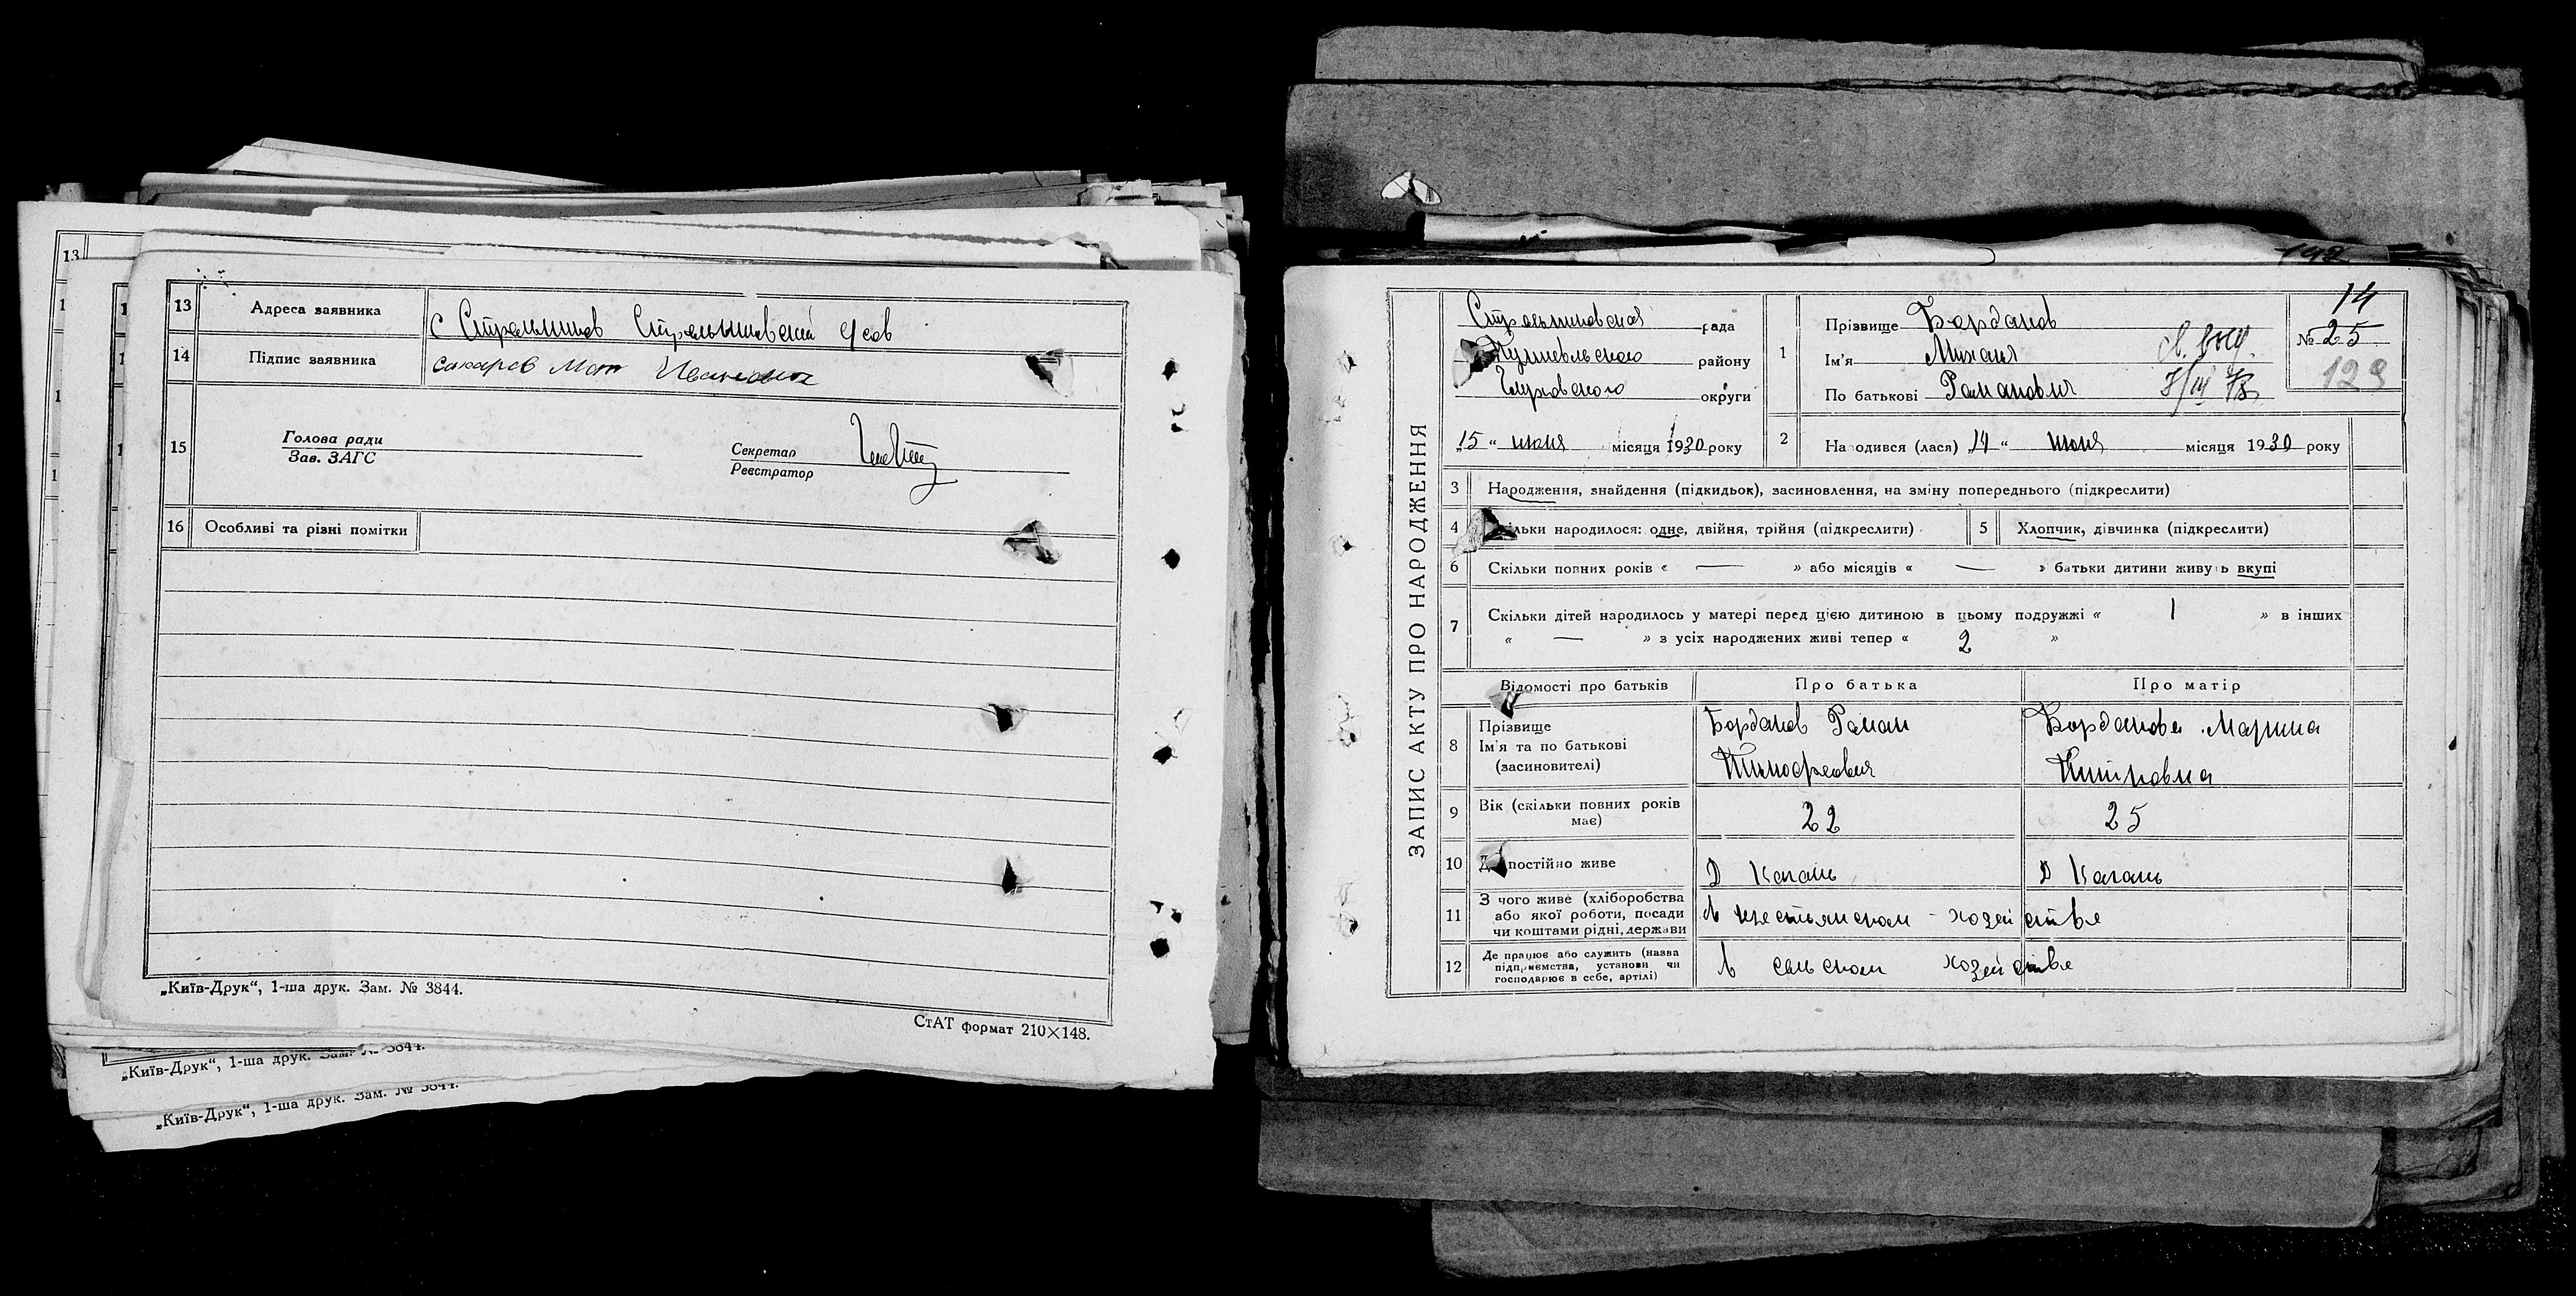 13
13 Адреса заявника с Стрельников Стрельниковской усов
14 Підпис заявника сахаров Мат Ивановна
15 Голова ради
Зав. ЗАГС
Секретар
Реєстратор
16 Особливі та різні помітки
„Київ-Друк“, 1-ша друк. Зам. № 3844.
СтАТ формат 210×148.
„Київ-Друк“, 1-ша друк. Зам. № 3844.
„Київ-Друк“, 1-ша друк. Зам. № 3844.
ЗАПИС АКТУ ПРО НАРОДЖЕННЯ
Стрельниковская рада
Путивльского району
Глуховского округи
„15“ июня місяця 1930 року
1 Прізвище Борданов
Ім'я Михаил
По батькові Романович
14
№ 25
129
2 Народився (лася) 14 “ июня місяця 1930 року
3 Народження, знайдення (підкидьок), засиновлення, на зміну попереднього (підкреслити)
4 Скільки народилося: одне, двійня, трійня (підкреслити)
5 Хлопчик, дівчинка (підкреслити)
6 Скільки повних років « — » або місяців « — » батьки дитини живуть вкупі
7 Скільки дітей народилось у матері перед цією дитиною в цьому подружжі « 1 » в інших
« — » з усіх народжених живі тепер « 2 »
Відомості про батьків Про батька Про матір
8 Прізвище
Ім'я та по батькові
(засиновителі)
Борданов Роман
Тимофеевич
Борданова Марина
9 Вік (скільки повних років має) 22 25
10 Де постійно живе Д Калань Д Калань
11 З чого живе (хліборобства
або якої роботи, посади
чи коштами рідні, держави
В крестьянском - хозяйстве
12 Де працює або служить (назва
підприємства, установи чи
господарює в себе, артілі)
В сельском хозяйстве